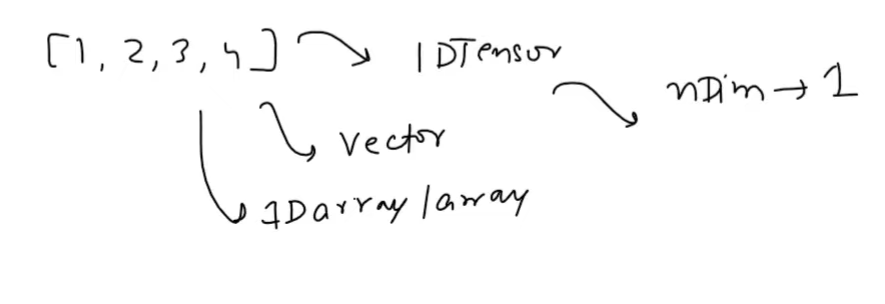 [1, 2, 3, 4] 1DTensor
nDim → 1
Vector
1Darray/array